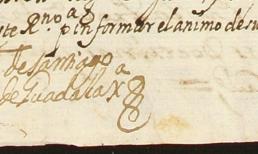 te R.no a p informar el animo de su
de santiago
de Guadalax.a